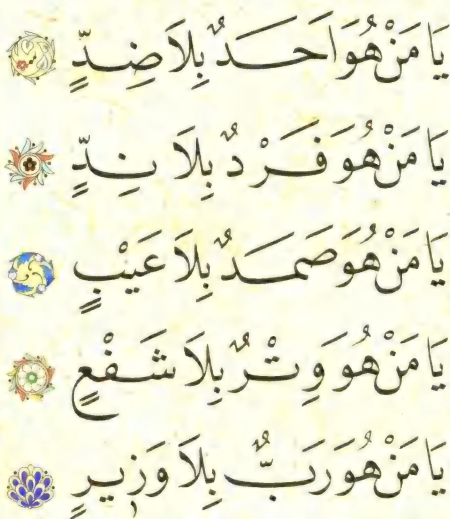 يَا مَنْ هُوَ اَحَدٌ بِلَا ضِدٍّ
يَا مَنْ هُوَ فَرْدٌ بِلَا نِدٍّ
يَا مَنْ هُوَ صَمَدٌ بِلَا عَيْبٍ
يَا مَنْ هُوَ وِتْرٌ بِلَا شَفْعٍ
يَا مَنْ هُوَ رَبٌّ بِلَا وَزِيرٍ